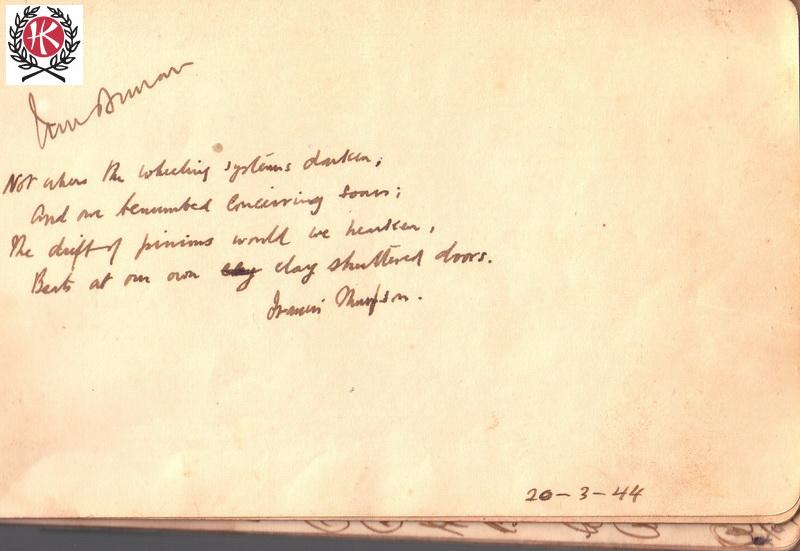 HK
Not where the wheeling systems darken,
And our benumbed conceiving soars;
The drift of pinions would we hearken,
Beats at our own clay clay shuttered doors.
Francis Thompson.
20-3-44